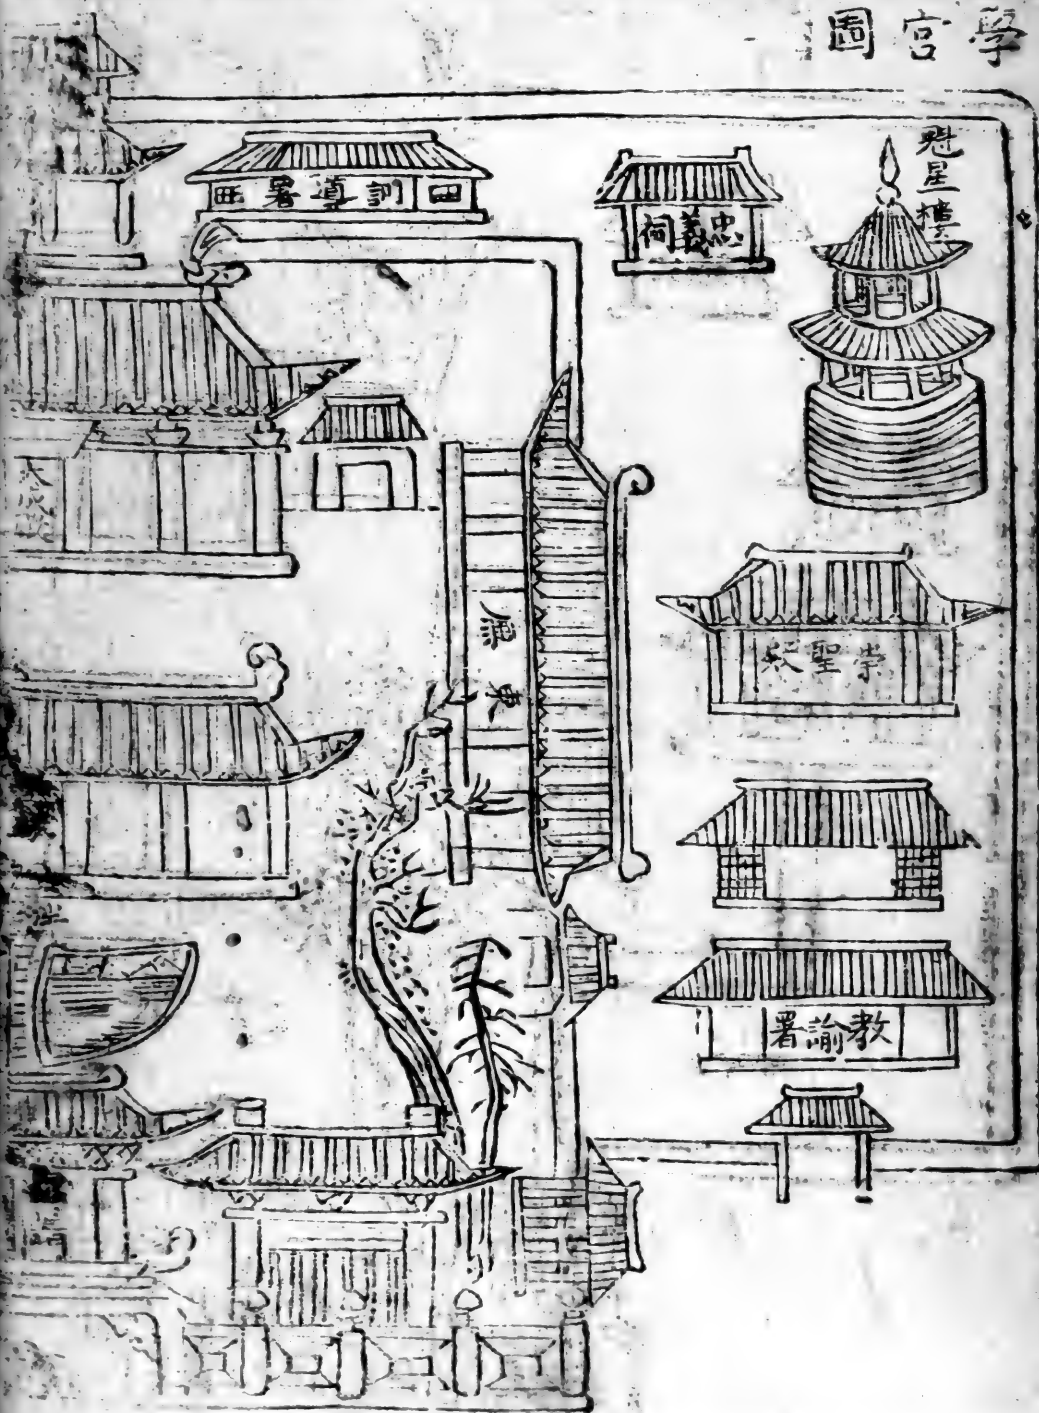 學宮圖
魁星樓
忠義祠
訓導署
東廡
崇聖祠
教諭署